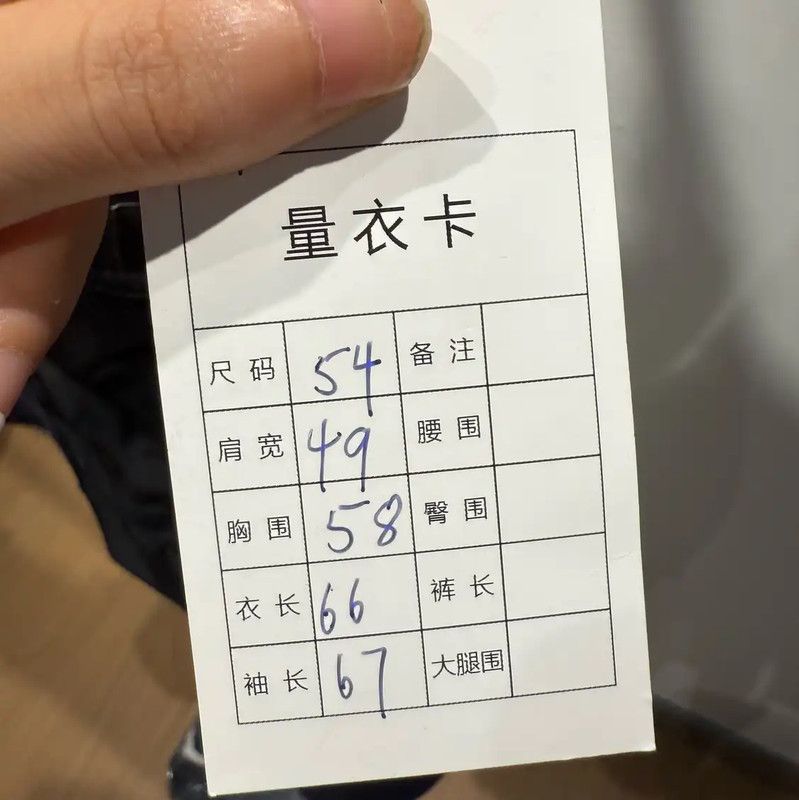 量衣卡
尺码 54 备注
肩宽 49 腰围
胸围 58 臀围
衣长 66 裤长
袖长 67 大腿围